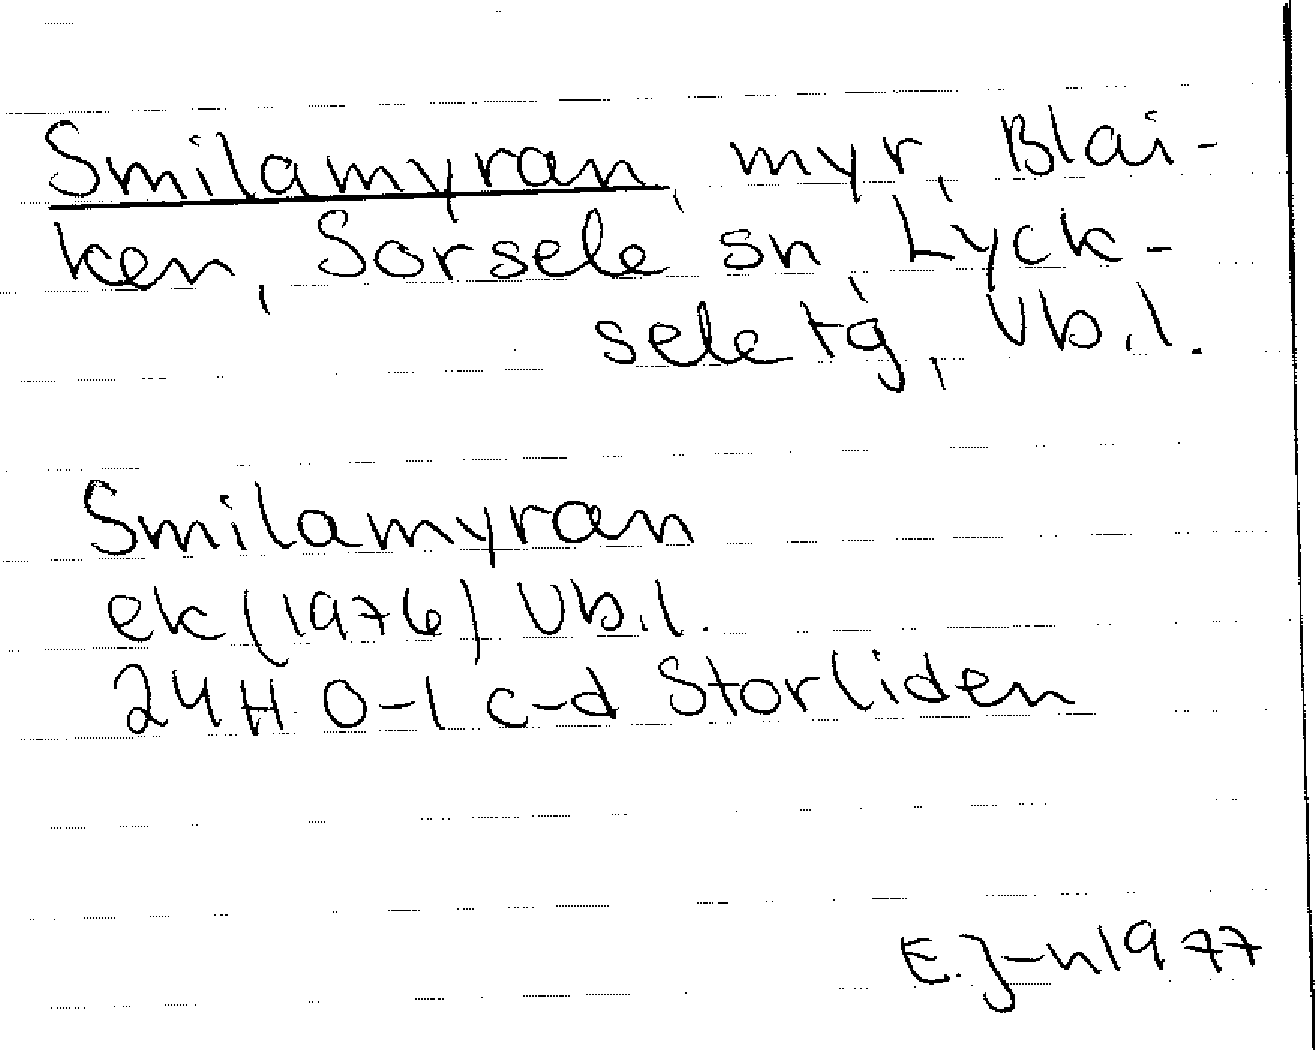 Smilamyran, myr, Blai-
ken, Sorsele sn, Lyck-
sele tg, Vb.l.
Smilamyran
ek (1976) Vb.l.
24H 0-1 c-d Storliden
E.J-n 1977